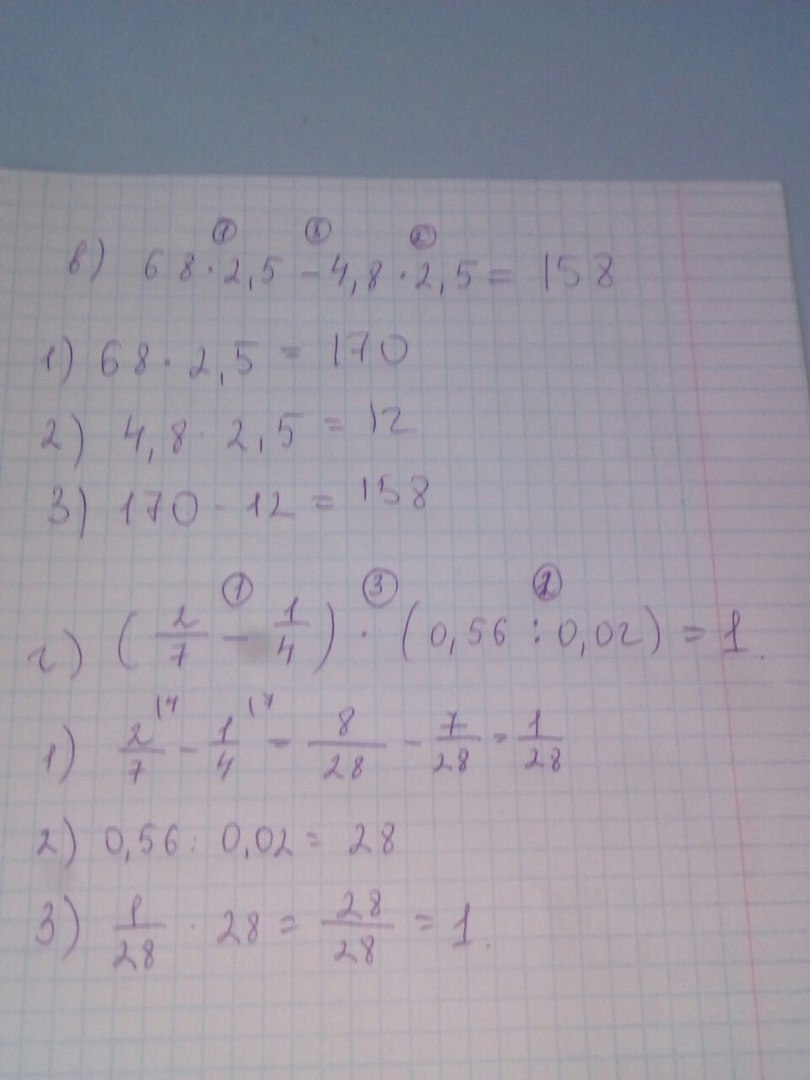 ① ③ ②
в) 68·2,5 - 4,8·2,5 = 158
1) 68·2,5 = 170
2) 4,8·2,5 = 12
3) 170 - 12 = 158
① ③ ②
г) (2/7 - 1/4) · (0,56 : 0,02) = 1.
1) 2/7 - 1/4 = 8/28 - 7/28 = 1/28
2) 0,56 : 0,02 = 28
3) 1/28 · 28 = 28/28 = 1.